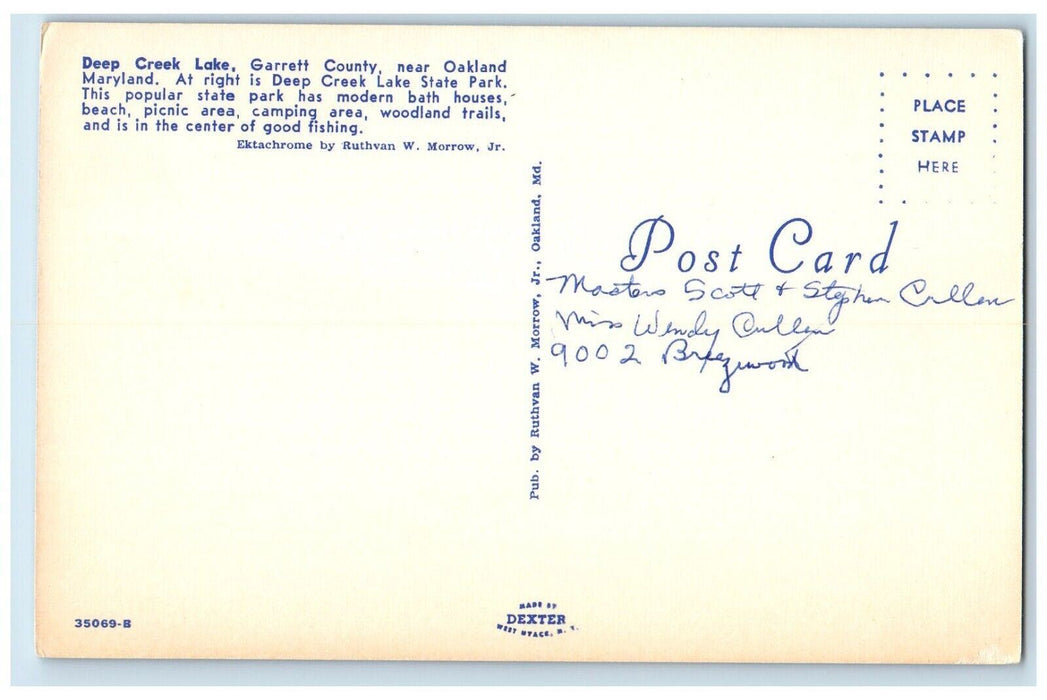 Deep Creek Lake, Garrett County, near Oakland
Maryland. At right is Deep Creek Lake State Park.
This popular state park has modern bath houses,
beach, picnic area, camping area, woodland trails,
and is in the center of good fishing.
Ektachrome by Ruthvan W. Morrow, Jr.
Pub. by Ruthvan W. Morrow, Jr., Oakland, Md.
PLACE
STAMP
HERE
Post Card
Masters Scott + Stephen Cullen
Miss Wendy Cullen
9002 Breezewood
35069-B
MADE BY
DEXTER
WEST NYACK, N. Y.